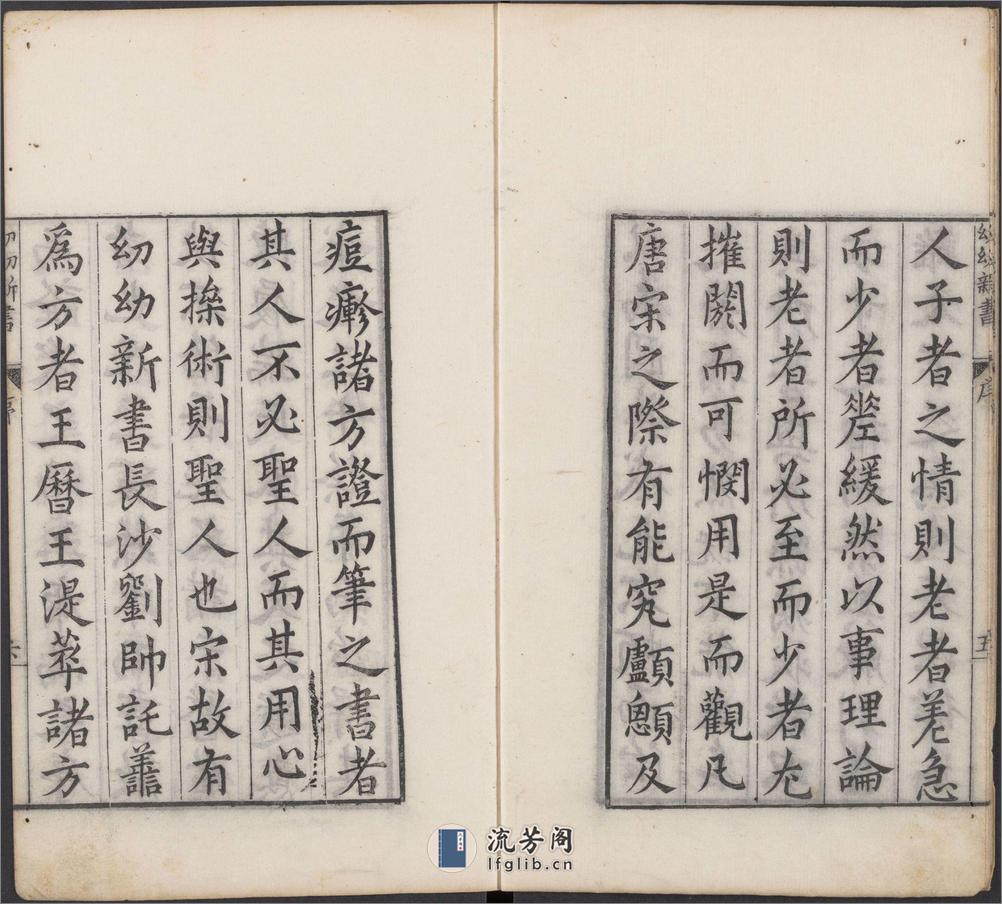 幼幼新書
序
五
人子者之情則老者差急
而少者差緩然以事理論
則老者所必至而少者尤
摧閼而可憫用是而觀凡
唐宋之際有能究顱顖及
痘瘮諸方證而筆之書者
其人不必聖人而其用心
與操術則聖人也宋故有
幼幼新書長沙劉帥託善
為方者王曆王湜萃諸方
幼幼新書
序
六
流芳阁
lfglib.cn